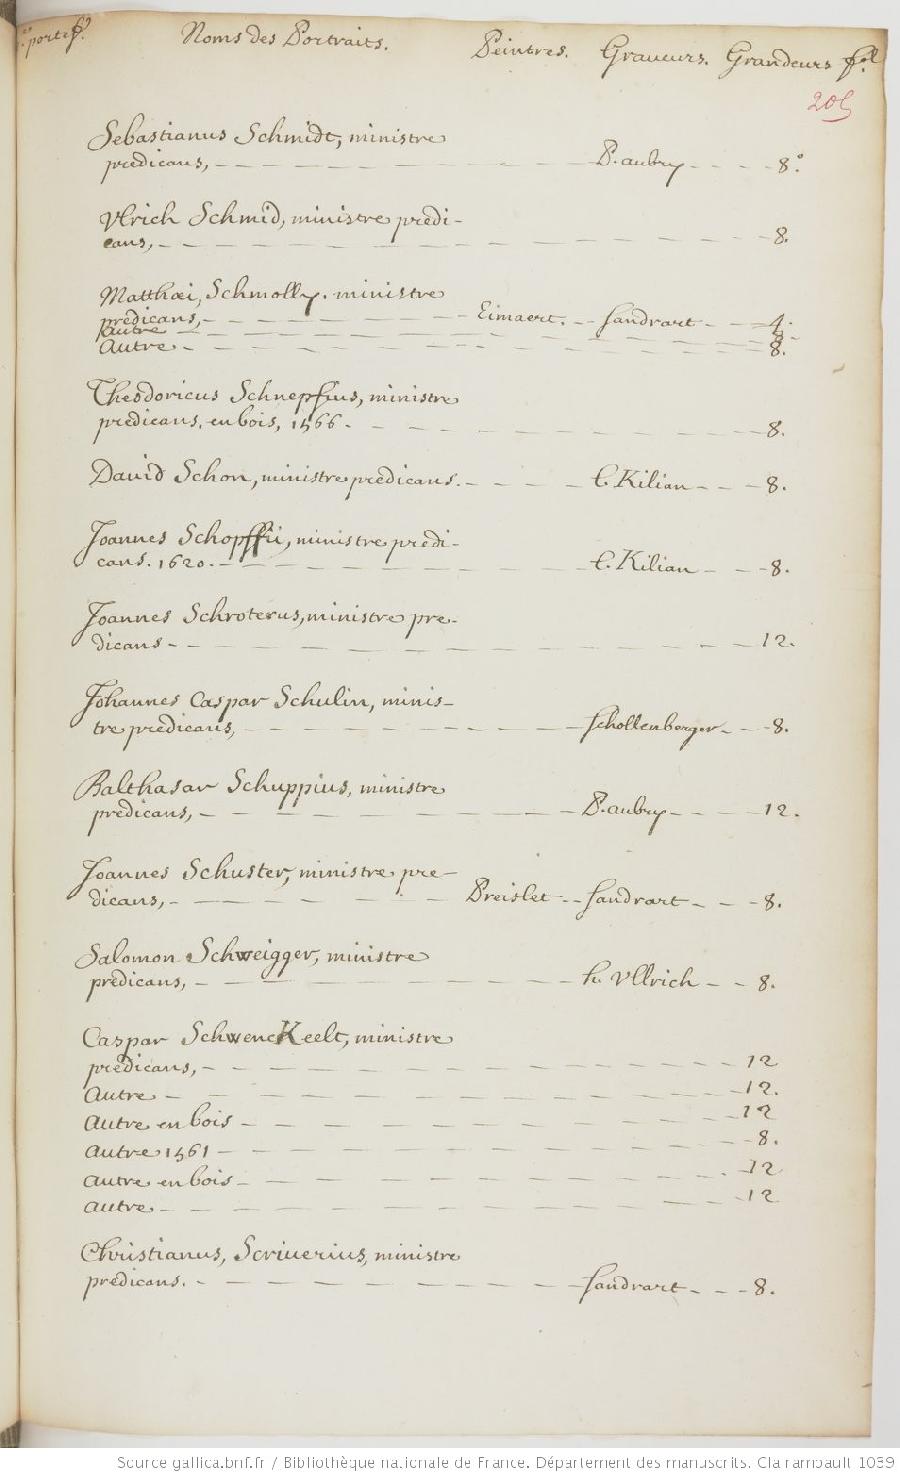 portef.º Noms des Portraits. Peintres. Graveurs. Grandeurs fol
205
Sebastianus Schmidt, ministre
predicans, P. aubry 8º.
Vlrich Schmid, ministre predi-
cans, 8.
Matthæi, Schmolly. ministre
predicans, Eimaert. Sandrart 4.
autre 8.
autre 8.
Theodoricus Schnepfius, ministre
predicans. en bois, 1566. 8.
David Schon, ministre predicans. L. Kilian 8.
Joannes Schopffii, ministre predi-
cans. 1620. L. Kilian 8.
Joannes Schroterus, ministre pre-
dicans 12.
Johannes Caspar Schulin, minis-
tre predicans, Schollenberger 8.
Balthasar Schuppius, ministre
predicans, P. aubry 12.
Joannes Schuster, ministre pre-
dicans, Preislet Sandrart 8.
Salomon Schweigger, ministre
predicans, h. Vllrich 8.
Caspar SchwencKeelt, ministre
predicans, 12
autre 12.
autre en bois 12
autre 1561 8.
autre en bois 12
autre 12
Christianus, Scriuerius, ministre
predicans. Sandrart 8.
Source gallica.bnf.fr / Bibliothèque nationale de France. Département des manuscrits. Clairambault 1039